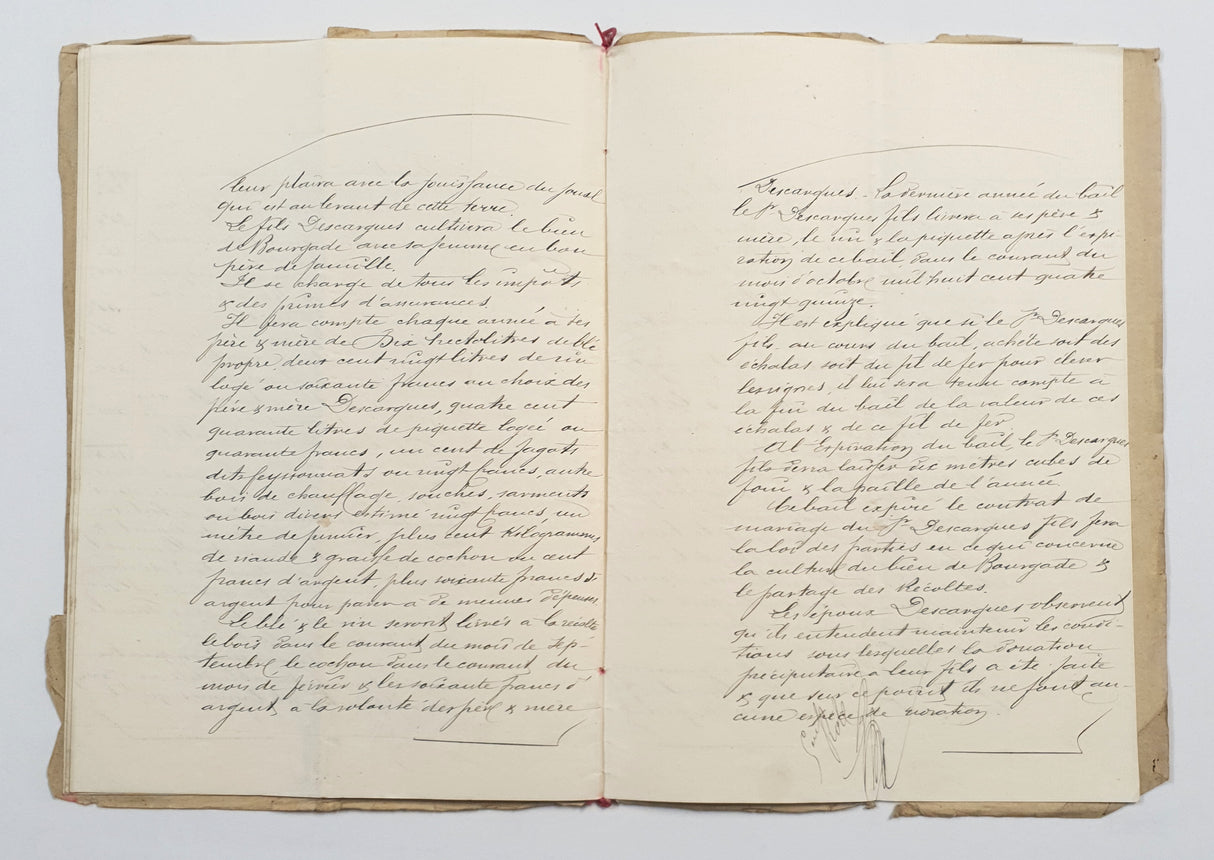 leur plaira avec la jouissance du
qui est au levant de cette terre.
Le fils Descargues cultivera le bien
de Bourgade avec sa femme en bon
père de famille.
Il se charge de tous les impôts
& des primes d'assurances
Il fera compte chaque année à ses
père & mère de Dix hectolitres de blé
propre, deux cent vingt litres de vin
logé ou soixante francs au choix des
père & mère Descargues, quatre cent
quarante litres de piquette logée ou
quarante francs, un cent de fagots
dits ou vingt francs, autre
bois de chauffage, souches, sarments
ou bois divers estimé vingt francs, un
mètre de fumier, plus cent Kilogrammes
de viande & graisse de cochon ou cent
francs d'argent plus soixante francs d'
argent pour parer à de menues dépenses
Le blé & le vin seront livrés à la récolte
le bois dans le courant du mois de Sep-
tembre, le cochon dans le courant du
mois de février & les soixante francs d'
argent, à la volonté des père & mère
Descargues. - La dernière année du bail
le Sr. Descargues fils livrera à ses père &
mère, le vin & la piquette après l'expi-
ration de ce bail, dans le courant du
mois d'octobre mil huit cent quatre
vingt quinze.
Il est expliqué que si le Sr. Descargues
fils au cours du bail, achète soit des
échalas soit du fil de fer pour élever
les vignes, il lui sera tenu compte à
la fin du bail de la valeur de ces
échalas & de ce fil de fer.
A l'Expiration du bail, le Sr. Descargues
fils devra laisser six mètres cubes de
foin & la paille de l'année.
Ce bail expiré le contrat de
mariage du Sr. Descargues fils fera
la loi des parties en ce qui concerne
la culture du bien de Bourgade &
le partage des Récoltes.
Les époux Descargues observent
qu'ils entendent maintenir les condi-
tions sous lesquelles la donation
préciputaire à leur fils a été faite
& que sur ce point ils ne font au-
cune espèce de novation.